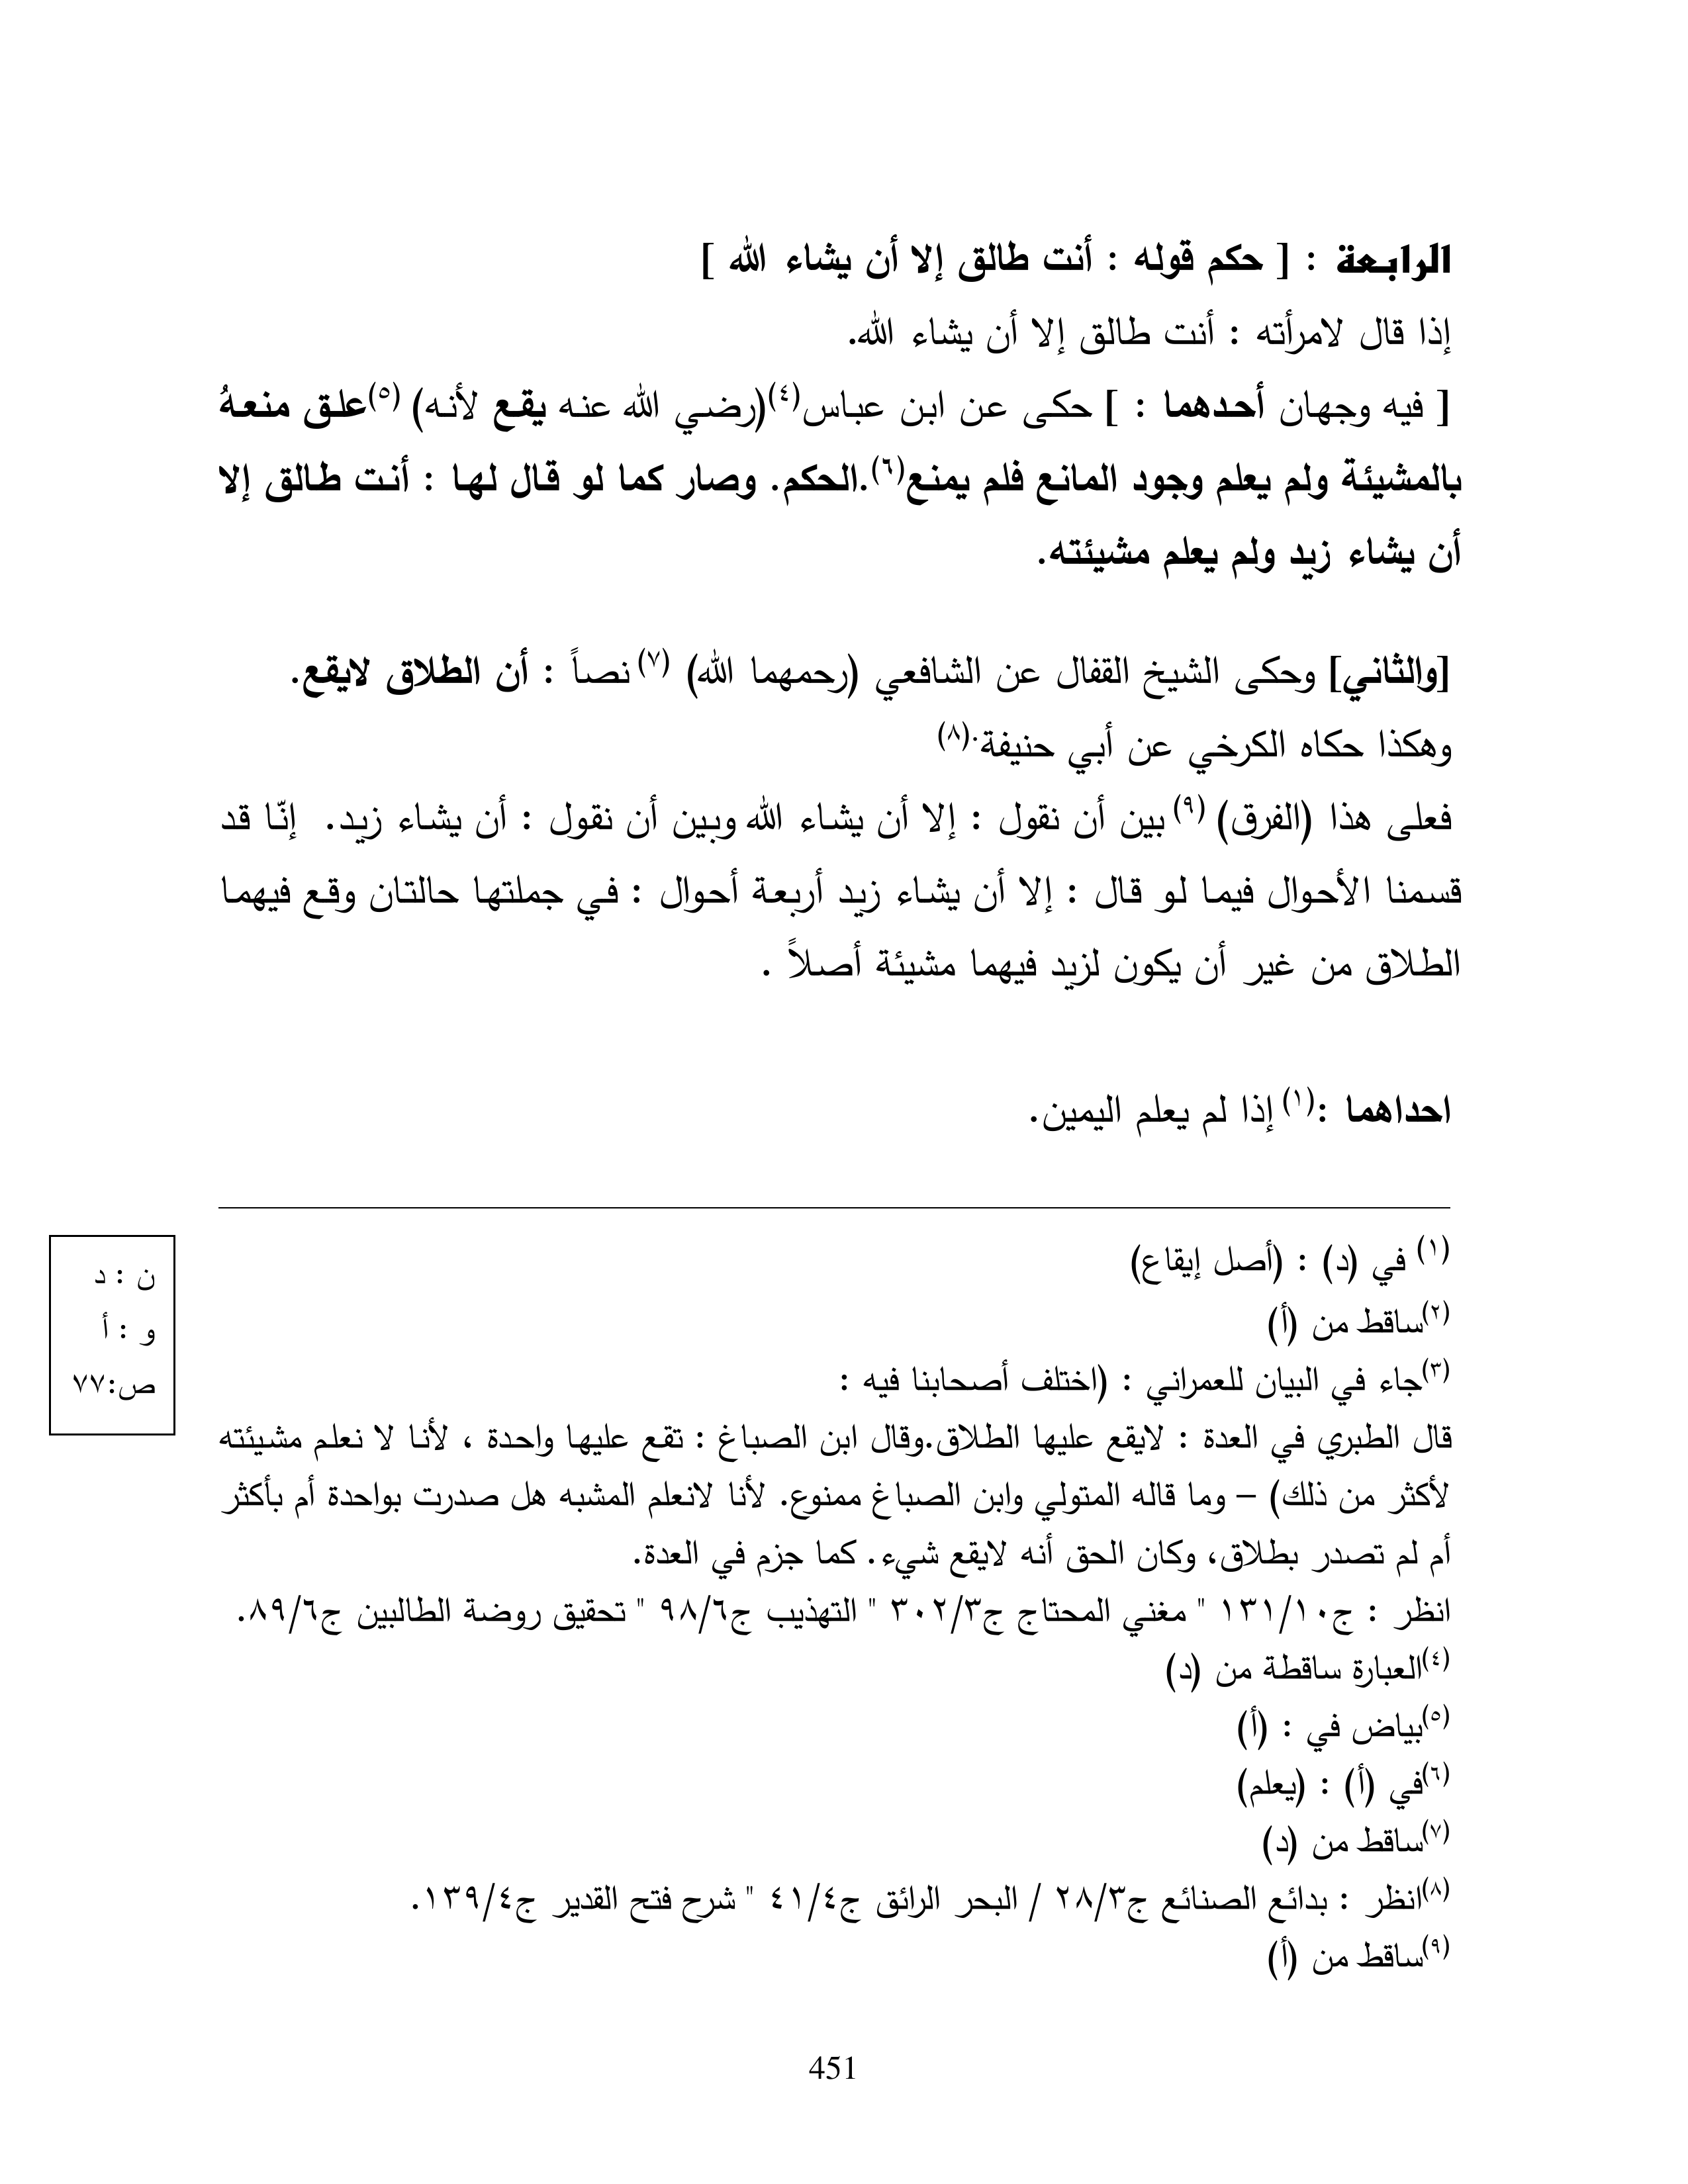 الرابعة : [ حكم قوله : أنت طالق إلا أن يشاء الله ]
إذا قال لامرأته : أنت طالق إلا أن يشاء الله.
[ فيه وجهان أحدهما : ] حكى عن ابن عباس(٤)(رضي الله عنه يقع لأنه) (٥)علق منعهُ
بالمشيئة ولم يعلم وجود المانع فلم يمنع(٦).الحكم. وصار كما لو قال لها : أنت طالق إلا
أن يشاء زيد ولم يعلم مشيئته.
[والثاني] وحكى الشيخ القفال عن الشافعي (رحمهما الله) (٧) نصاً : أن الطلاق لايقع.
وهكذا حكاه الكرخي عن أبي حنيفة.(٨)
فعلى هذا (الفرق) (٩) بين أن نقول : إلا أن يشاء الله وبين أن نقول : أن يشاء زيد. إنّا قد
قسمنا الأحوال فيما لو قال : إلا أن يشاء زيد أربعة أحوال : في جملتها حالتان وقع فيهما
الطلاق من غير أن يكون لزيد فيهما مشيئة أصلاً .
احداهما :(١) إذا لم يعلم اليمين.
(١) في (د) : (أصل إيقاع)
(٢)ساقط من (أ)
(٣)جاء في البيان للعمراني : (اختلف أصحابنا فيه :
قال الطبري في العدة : لايقع عليها الطلاق.وقال ابن الصباغ : تقع عليها واحدة ، لأنا لا نعلم مشيئته
لأكثر من ذلك) – وما قاله المتولي وابن الصباغ ممنوع. لأنا لانعلم المشبه هل صدرت بواحدة أم بأكثر
أم لم تصدر بطلاق، وكان الحق أنه لايقع شيء. كما جزم في العدة.
انظر : ج١٣١/١٠ " مغني المحتاج ج٣٠٢/٣ " التهذيب ج٩٨/٦ " تحقيق روضة الطالبين ج٨٩/٦.
(٤)العبارة ساقطة من (د)
(٥)بياض في : (أ)
(٦)في (أ) : (يعلم)
(٧)ساقط من (د)
(٨)انظر : بدائع الصنائع ج٢٨/٣ / البحر الرائق ج٤١/٤ " شرح فتح القدير ج١٣٩/٤.
(٩)ساقط من (أ)
ن : د
و : أ
ص:٧٧
451